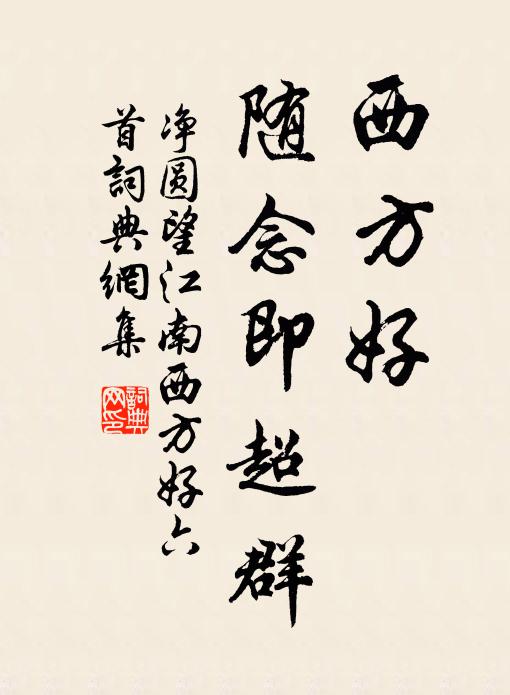 西方好
随念即超群
净圆望江南西方好六
首詞典網集
詞典网印